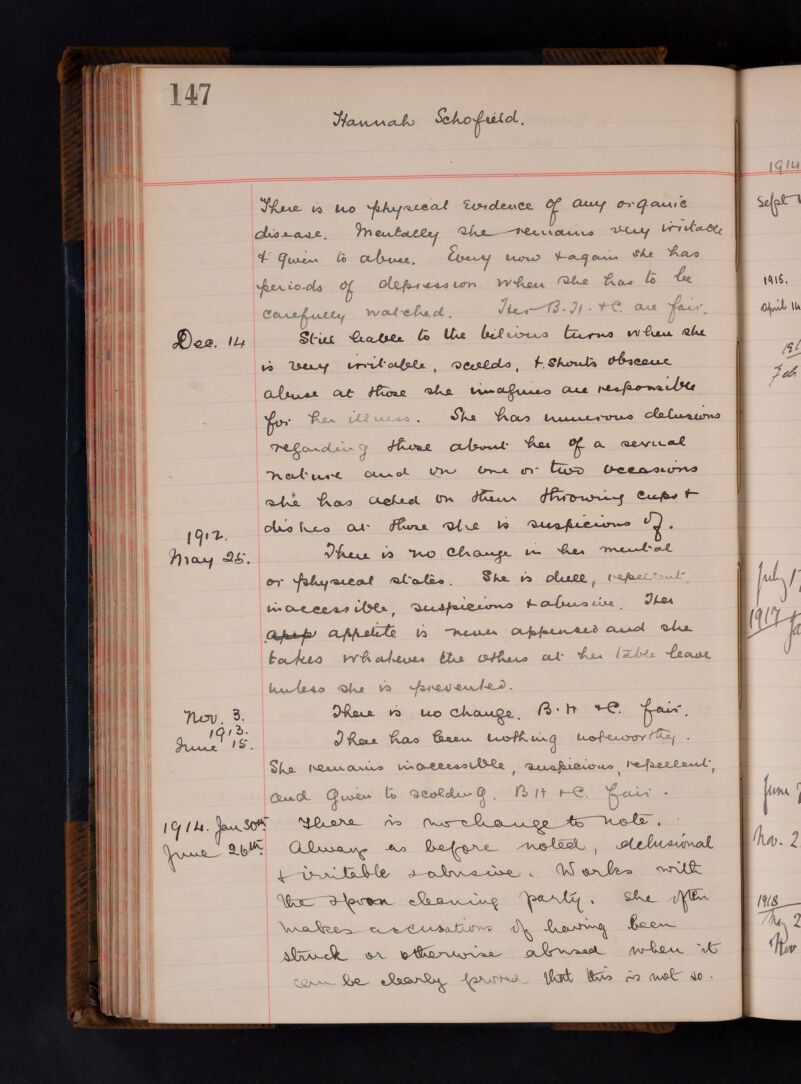 147
Hannah Schofield.
There is no physical Evidence of any organic
disease. Mentally she remains very irritable
& given to abuse. Every now & again she has
periods of depression when she has to be
carefully watched. Her B.H. & C. are fair.
Dec. 14 Still liable to the bilious turns when she
is very irritable, scolds, & shouts obscene
abuse at those she imagines are responsible
for her illness. She has numerous delusions
regarding those about her of a sexual
nature and on one or two occasions
she has acted on them throwing cups &
dishes at those she is suspicious of.
1912.
May 25. There is no change in her mental
or physical states. She is dull, repellent,
inaccessible, suspicious & abusive. Her
appetite is never appeased and she
takes whatever the others at her table leave
unless she is prevented.
Nov. 3. There is no change. B.H & C. fair.
1913.
June 15. There has been nothing noteworthy.
She remains inaccessible, suspicious, repellent,
and given to scolding. B H & C. fair.
1914. Jan 30th There is no change to note.
June 26th. Always as before noted, delusional
& irritable & abusive. Works with
the spoon cleaning party. She often
makes accusations of having been
struck or otherwise abused when it
can be clearly proved that this is not so.
1914
Sept
1916.
April
Feb.
July 1
1917
June
Nov. 2
1918
Nov